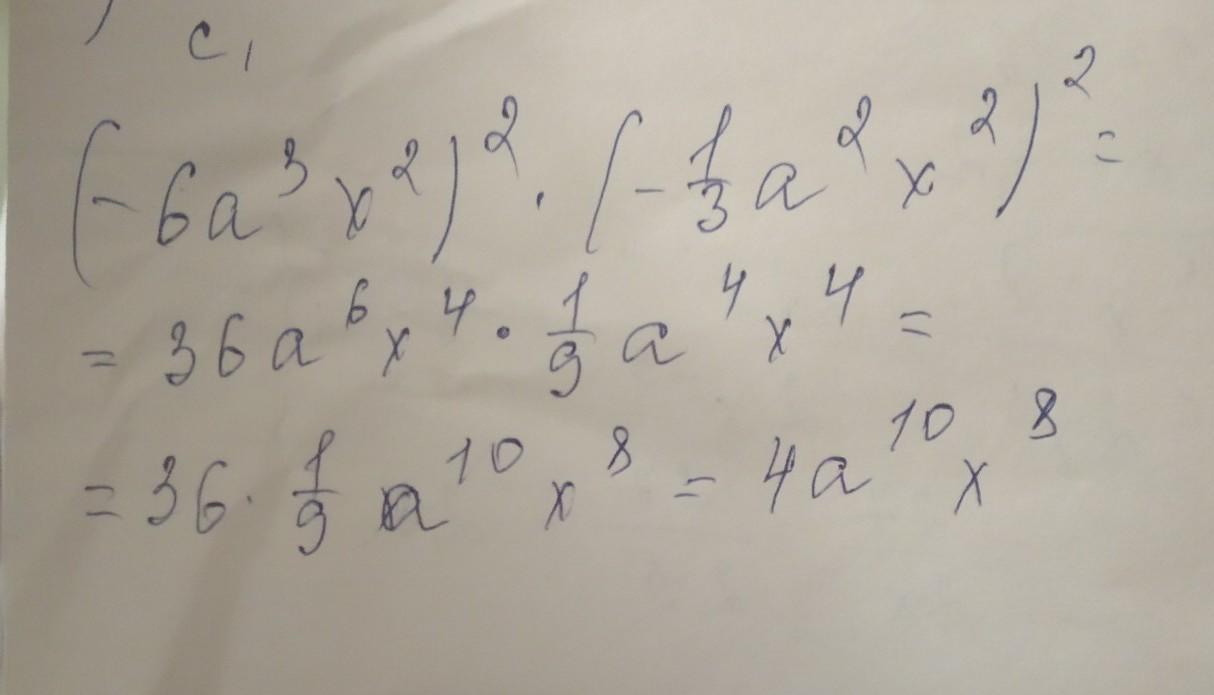 c,
(-6a³x²)² · (-1/3 a²x²)² =
= 36a⁶x⁴ · 1/9 a⁴x⁴ =
= 36 · 1/9 a¹⁰x⁸ = 4a¹⁰x⁸